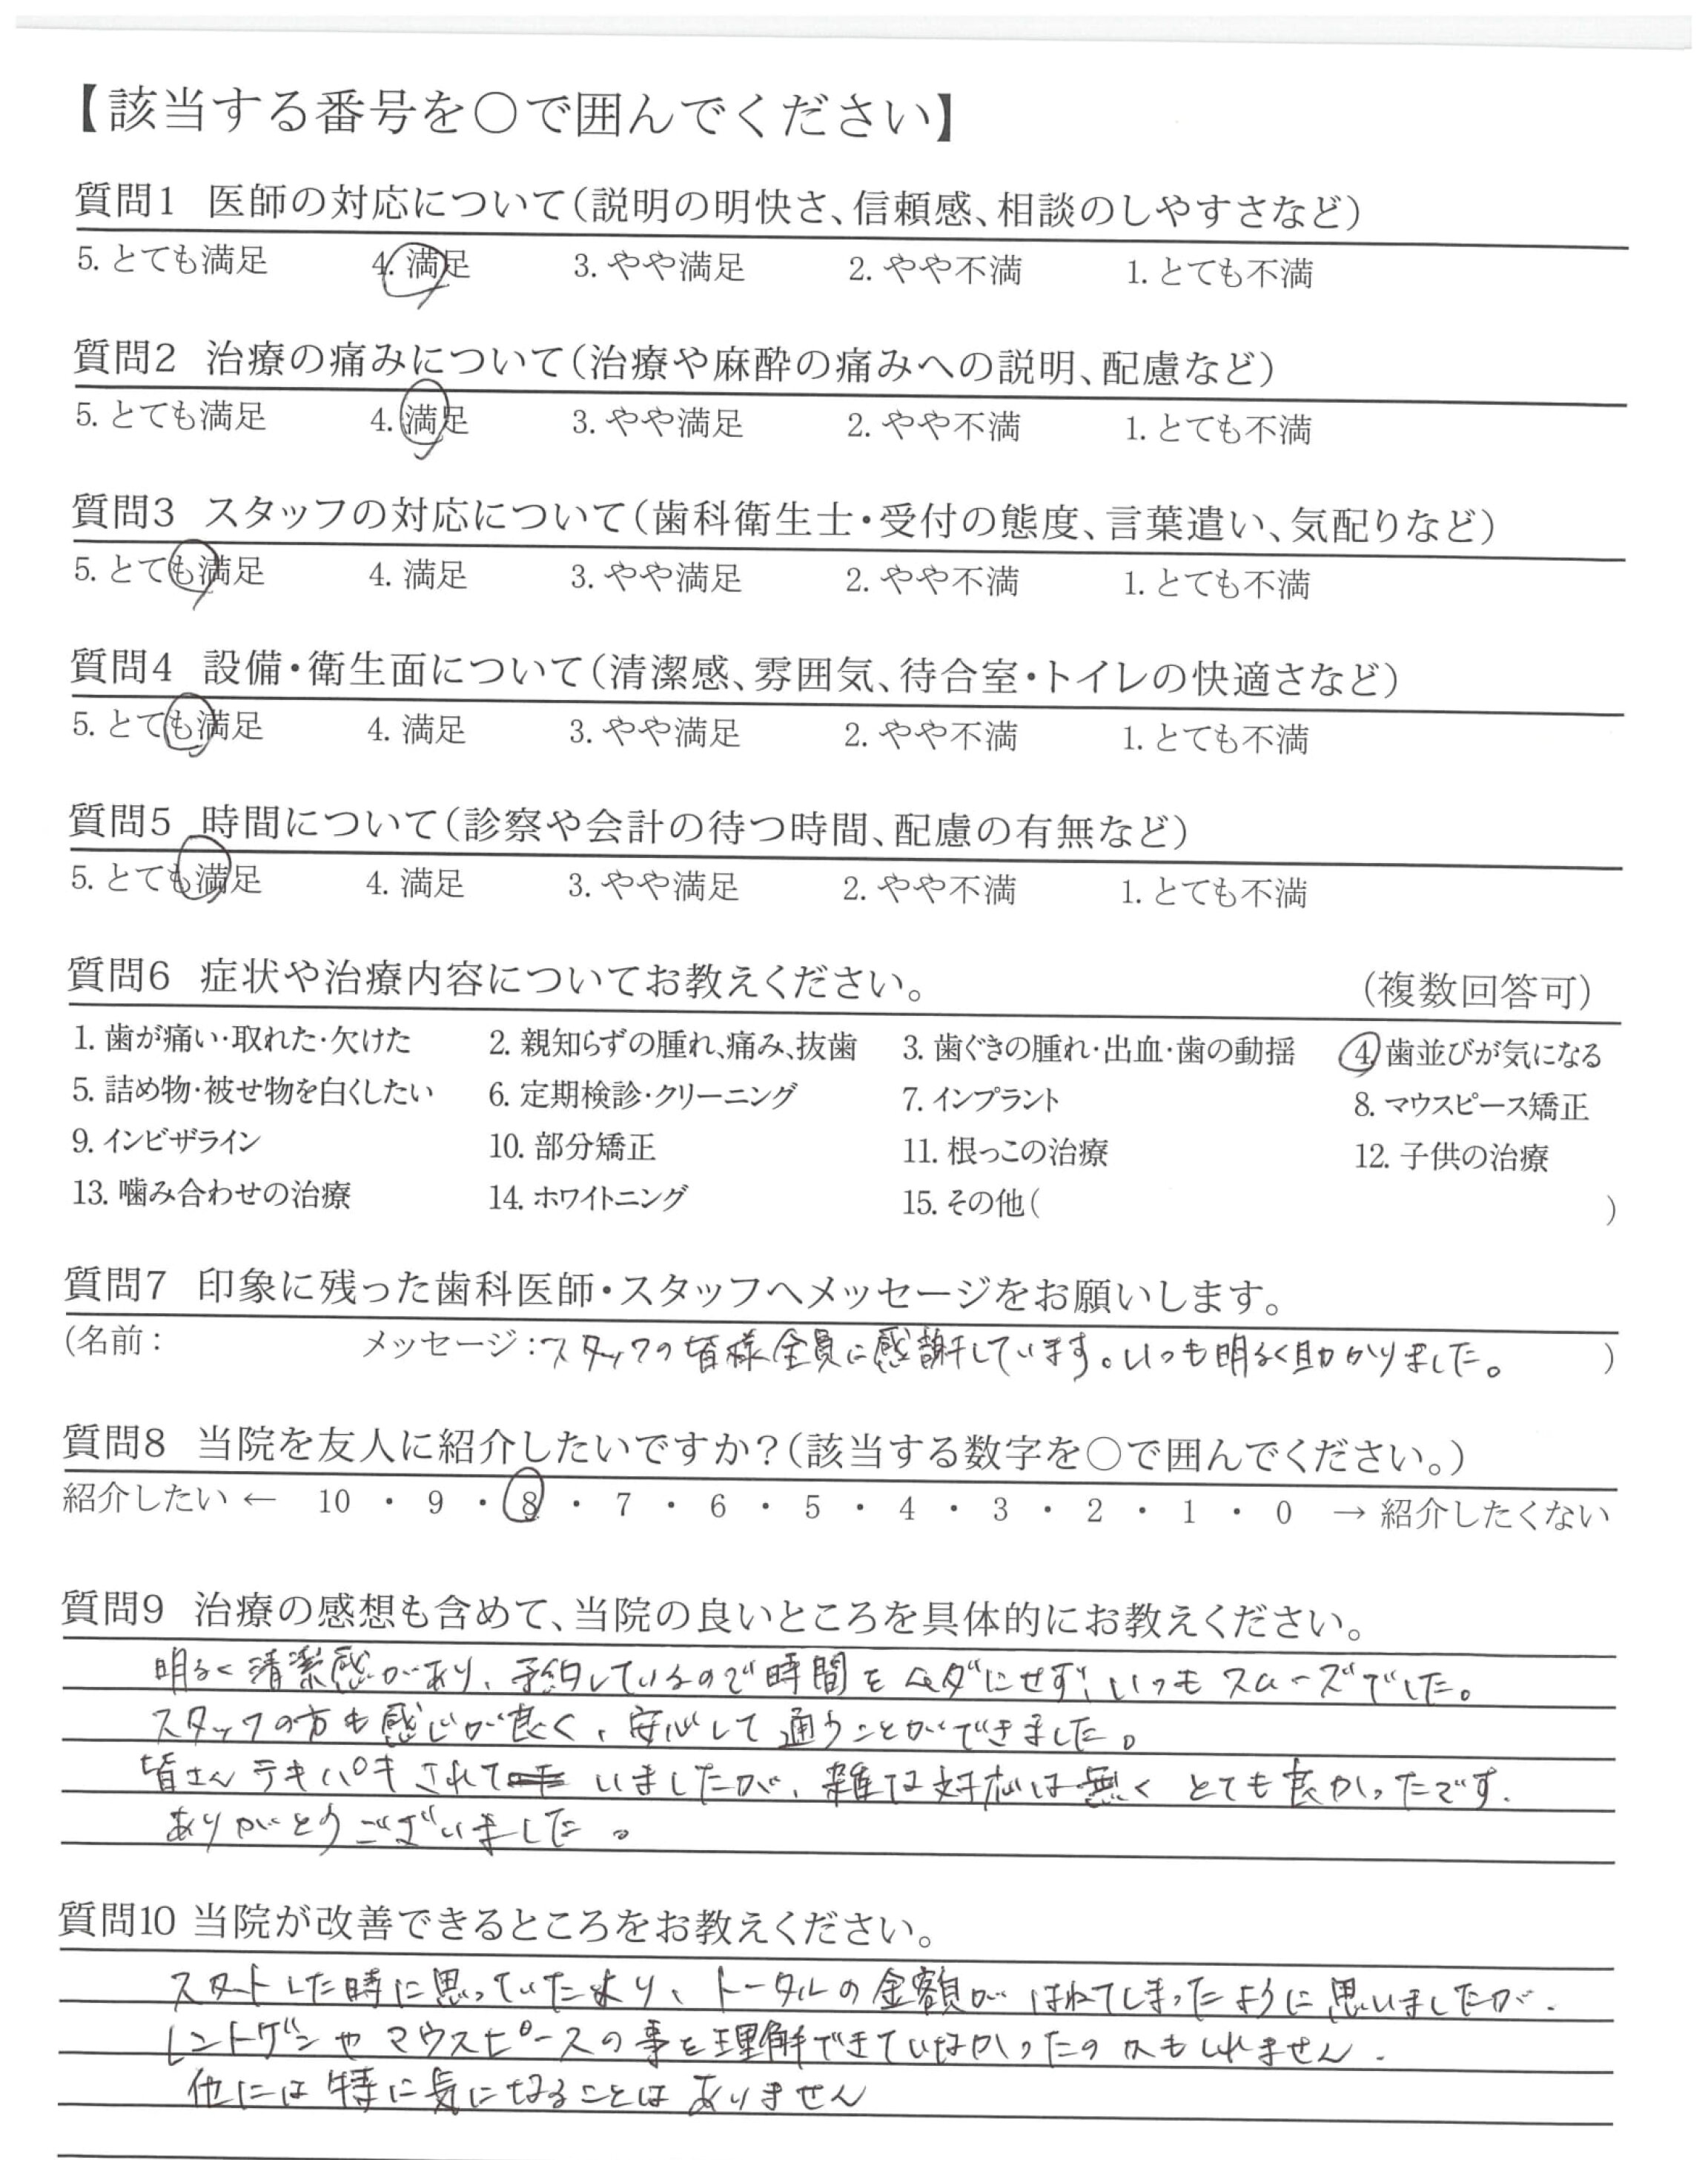 【該当する番号を○で囲んでください】
質問1 医師の対応について(説明の明快さ、信頼感、相談のしやすさなど)
5. とても満足 4. 満足 3. やや満足 2. やや不満 1. とても不満
質問2 治療の痛みについて(治療や麻酔の痛みへの説明、配慮など)
5. とても満足 4. 満足 3. やや満足 2. やや不満 1. とても不満
質問3 スタッフの対応について(歯科衛生士・受付の態度、言葉遣い、気配りなど)
5. とても満足 4. 満足 3. やや満足 2. やや不満 1. とても不満
質問4 設備・衛生面について(清潔感、雰囲気、待合室・トイレの快適さなど)
5. とても満足 4. 満足 3. やや満足 2. やや不満 1. とても不満
質問5 時間について(診察や会計の待つ時間、配慮の有無など)
5. とても満足 4. 満足 3. やや満足 2. やや不満 1. とても不満
質問6 症状や治療内容についてお教えください。 (複数回答可)
1. 歯が痛い・取れた・欠けた 2. 親知らずの腫れ、痛み、抜歯 3. 歯ぐきの腫れ・出血・歯の動揺 4. 歯並びが気になる
5. 詰め物・被せ物を白くしたい 6. 定期検診・クリーニング 7. インプラント 8. マウスピース矯正
9. インビザライン 10. 部分矯正 11. 根っこの治療 12. 子供の治療
13. 噛み合わせの治療 14. ホワイトニング 15. その他( )
質問7 印象に残った歯科医師・スタッフへメッセージをお願いします。
(名前: メッセージ:スタッフの皆様全員に感謝しています。いつも明るく助かりました。 )
質問8 当院を友人に紹介したいですか?(該当する数字を○で囲んでください。)
紹介したい ← 10 ・ 9 ・ 8 ・ 7 ・ 6 ・ 5 ・ 4 ・ 3 ・ 2 ・ 1 ・ 0 → 紹介したくない
質問9 治療の感想も含めて、当院の良いところを具体的にお教えください。
明るく清潔感があり、予約しているので時間をムダにせず、いつもスムーズでした。
スタッフの方も感じが良く、安心して通うことができました。
皆さんテキパキされていましたが、雑な対応は無くとても良かったです.
ありがとうございました。
質問10 当院が改善できるところをお教えください。
スタートした時に思っていたより、トータルの金額がはねてしまったように思いましたが.
レントゲンやマウスピースの事を理解できていなかったのかもしれません.
他には特に気になることはありません